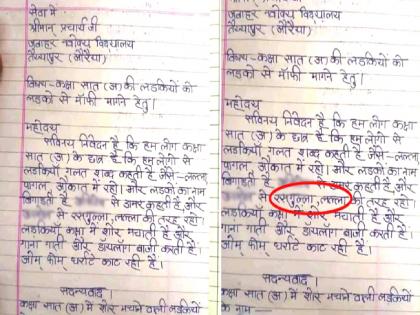 सेवा में
श्रीमान प्रचार्य जी
जवाहर नवोदय विद्यालय
तैय्यापुर (औरैया)
विषय-कक्षा सात (अ) की लडकियों को
लडको से माँफी मागने हेतु।
महोदय
सविनय निवेदन है कि हम लोग कक्षा
सात (अ) के छात्र है कि हम लोगो से
लडकियाँ गलत शब्द कहती है जैसे-लल्ला
पागल, औकात में रहो। और लडके का नाम
बिगाडती है से डामर कहती है और
से रसगुल्ला, लल्ला की तरह रहो।
लडकियाँ कक्षा में शोर मचाती है और
गाना गाती और डायलॉग बाजी करती है।
ओम् फीम् धर्राटे काट रही है।
सदन्यवाद।
कक्षा सात (अ) में शोर मचाने वाली लडकियों
श्रीमान प्रचार्य जी
जवाहर नवोदय विद्यालय
तैय्यापुर (औरैया)
विषय-कक्षा सात (अ) की लडकियों को
लडको से माँफी मागने हेतु।
महोदय
सविनय निवेदन है कि हम लोग कक्षा
सात (अ) के छात्र है कि हम लोगो से
लडकियाँ गलत शब्द कहती है जैसे-लल्ला
पागल, औकात में रहो। और लडके का नाम
बिगाडती है से डामर कहती है और
से रसगुल्ला, लल्ला की तरह रहो।
लडकियाँ कक्षा में शोर मचाती है और
गाना गाती और डायलॉग बाजी करती है।
ओम् फीम् धर्राटे काट रही है।
सदन्यवाद।
कक्षा सात (अ) में शोर मचाने वाली लडकियों
के नाम